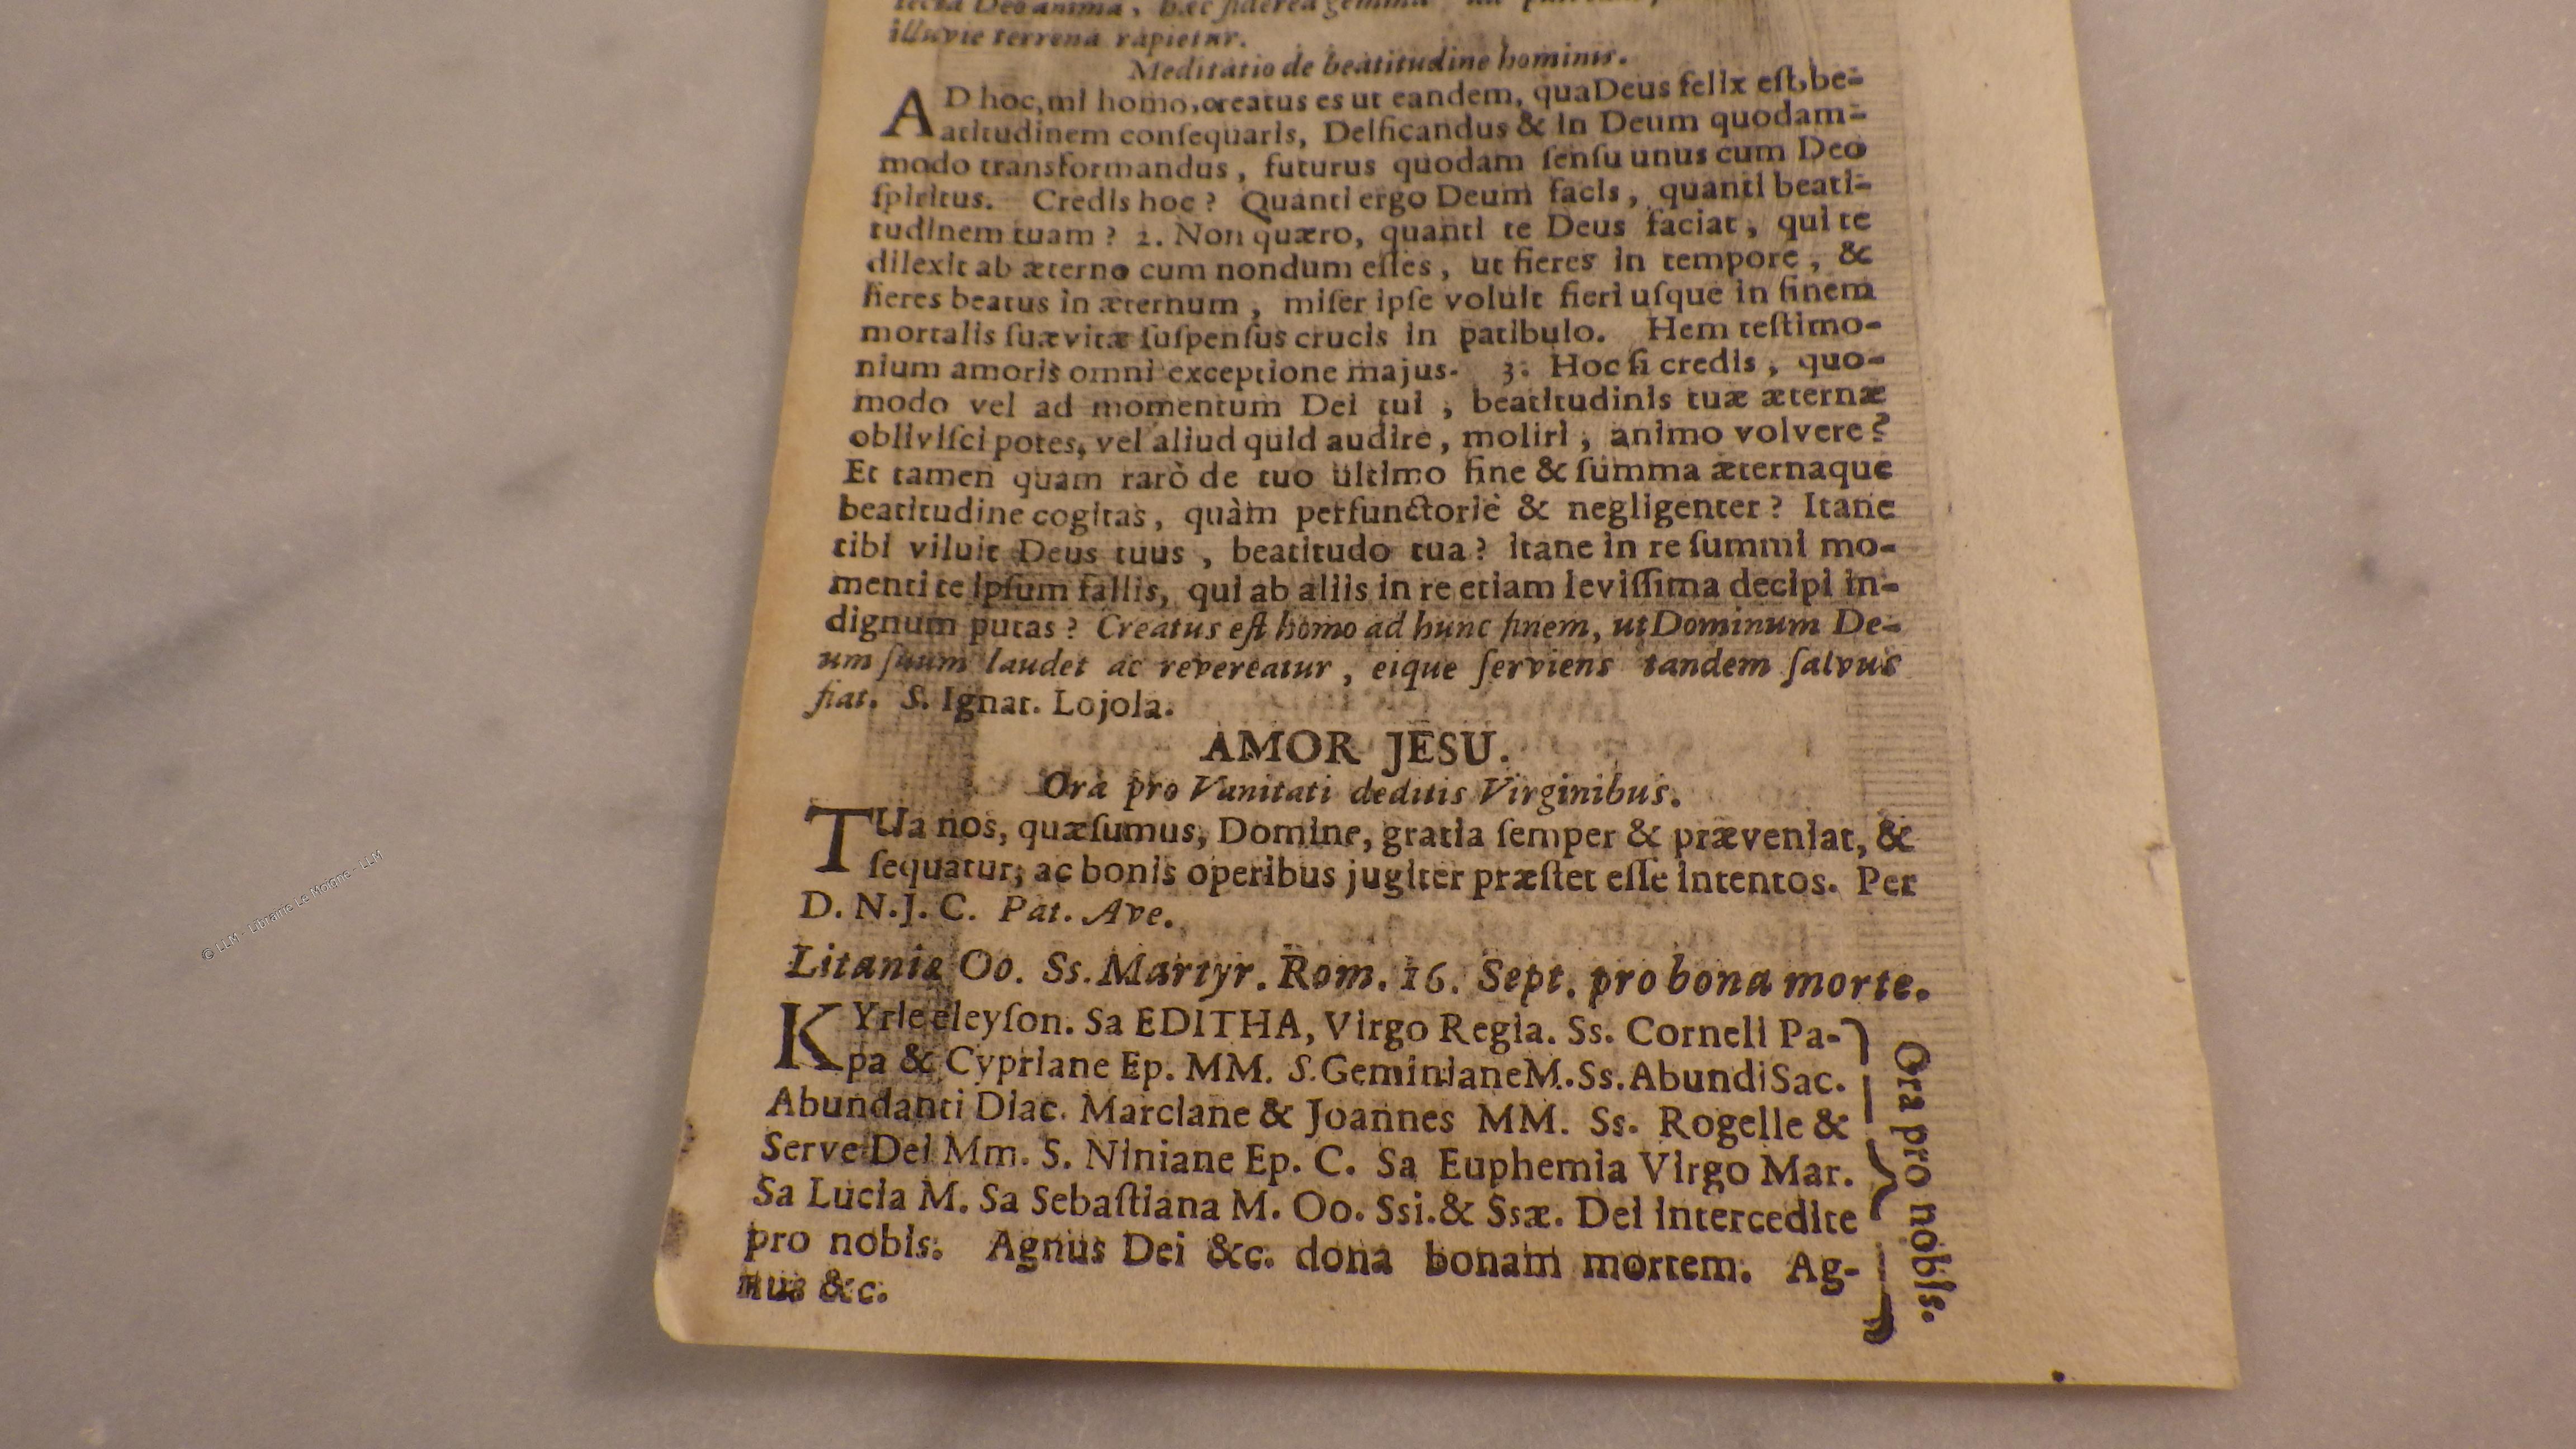 Deo anima, hæc siderea gemma
illuvie terrena rapietur.
Meditatio de beatitudine hominis.
AD hoc, mi homo, creatus es ut eandem, qua Deus felix eſt, be-
atitudinem conſequaris, Deificandus & in Deum quodam-
modo transformandus, futurus quodam ſenſu unus cum Deo
ſpiritus. Credis hoc? Quanti ergo Deum facis, quanti beati-
tudinem tuam? 2. Non quæro, quanti te Deus faciat, qui te
dilexit ab æterno cum nondum eſſes, ut fieres in tempore, &
fieres beatus in æternum, miſer ipſe voluit fieri uſque in finem
mortalis ſuæ vitæ ſuſpenſus crucis in patibulo. Hem teſtimo-
nium amoris omni exceptione majus. 3. Hoc ſi credis, quo-
modo vel ad momentum Dei tui, beatitudinis tuæ æternæ
obliviſci potes, vel aliud quid audire, moliri, animo volvere?
Et tamen quam rarò de tuo ultimo fine & ſumma æternaque
beatitudine cogitas, quàm perfunctoriè & negligenter? Itane
tibi viluit Deus tuus, beatitudo tua? itane in re ſummi mo-
menti te ipſum fallis, qui ab aliis in re etiam leviſſima decipi in-
dignum putas? Creatus eſt homo ad hunc finem, ut Dominum De-
um ſuum laudet ac revereatur, eique ſerviens tandem ſalvus
fiat. S. Ignat. Lojola.
AMOR JESU.
Ora pro Vanitati deditis Virginibus.
TUa nos, quæſumus, Domine, gratia ſemper & præveniat, &
ſequatur; ac bonis operibus jugiter præſtet eſſe intentos. Per
D. N. J. C. Pat. Ave.
Litaniæ Oo. Ss. Martyr. Rom. 16. Sept. pro bona morte.
KYrie eleyſon. Sa EDITHA, Virgo Regia. Ss. Corneli Pa-
pa & Cypriane Ep. MM. S. Geminiane M. Ss. Abundi Sac.
Abundanti Diac. Marciane & Joannes MM. Ss. Rogelle &
Serve Dei Mm. S. Niniane Ep. C. Sa Euphemia Virgo Mar.
Sa Lucia M. Sa Sebaſtiana M. Oo. Ssi. & Ssæ. Dei intercedite
pro nobis. Agnus Dei &c. dona bonam mortem. Ag-
nus &c.
Ora pro nobis.
© LLM - Librairie Le Moigne - LLM